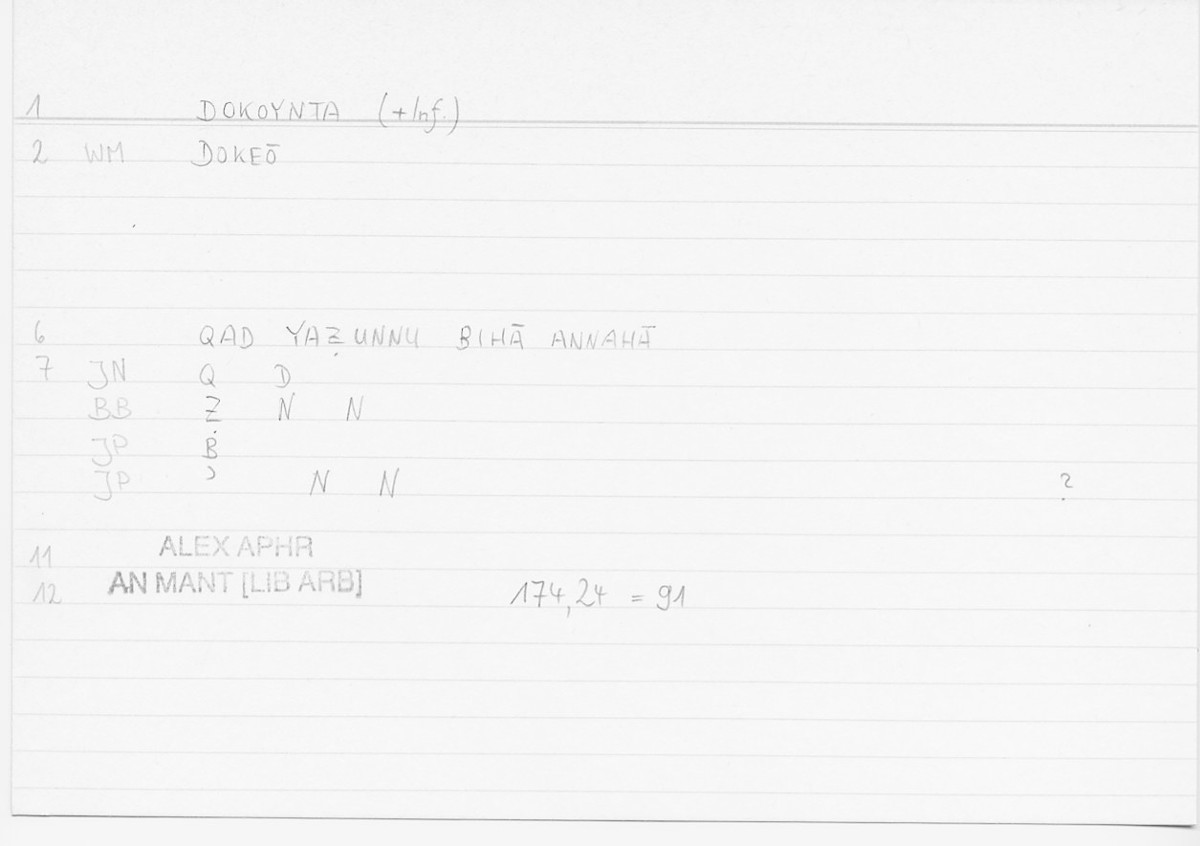 1 DOKOYNTA (+Inf.)
2 WM DOKEŌ
6 QAD YAẒUNNU BIHĀ ANNAHĀ
7 JN Q D
BB Ẓ N N
JP B
JP ʾ N N ?
11 ALEX APHR
12 AN MANT [LIB ARB] 174,24 = 91